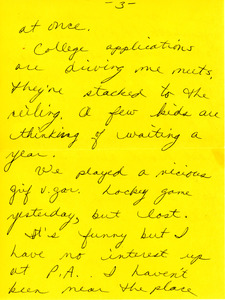 - 3 -
at once.
College applications
are driving me nuts,
they're stacked to the
ceiling. A few kids are
thinking of waiting a
year.
We played a vicious
hockey game
yesterday, but lost.
It's funny but I
have no interest up
at P.A.. I haven't
been near the place